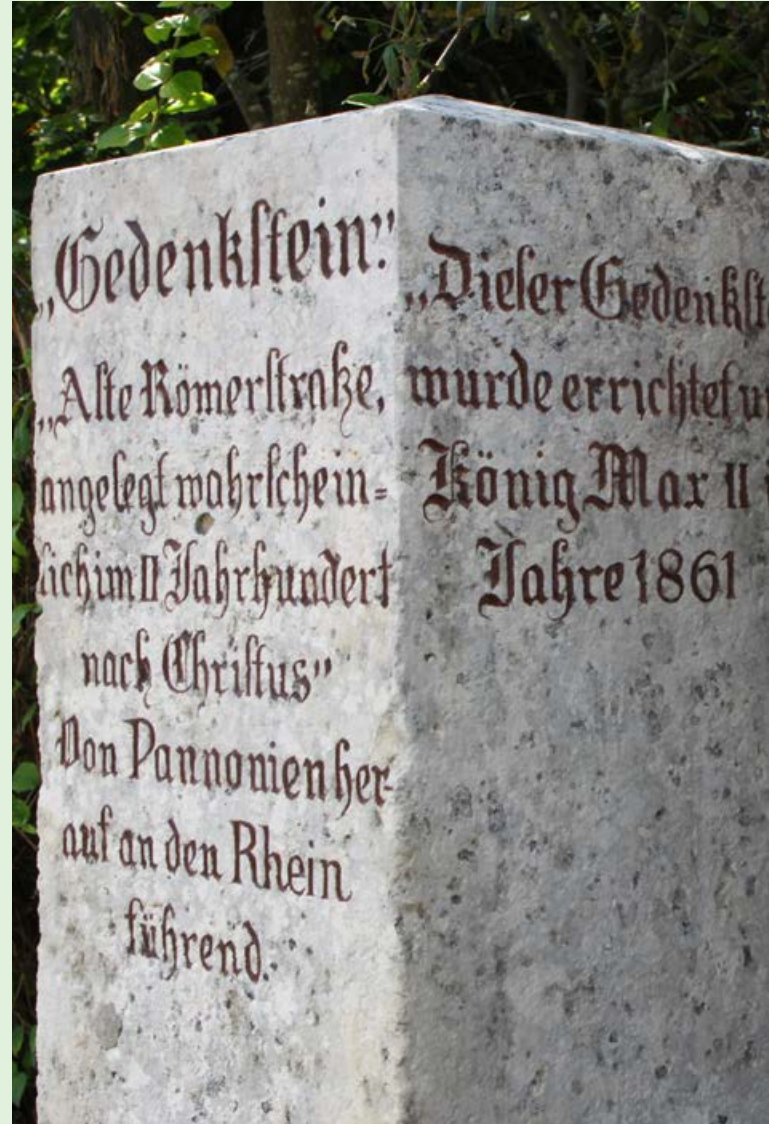 „Gedenkſtein."
„Alte Römerſtraße,
angelegt wahrſchein=
lich im II Jahrhundert
nach Chriſtus"
Von Pannonien her-
auf an den Rhein
führend.
„Dieſer Gedenkſte
wurde errichtet un
König Max II i
Jahre 1861